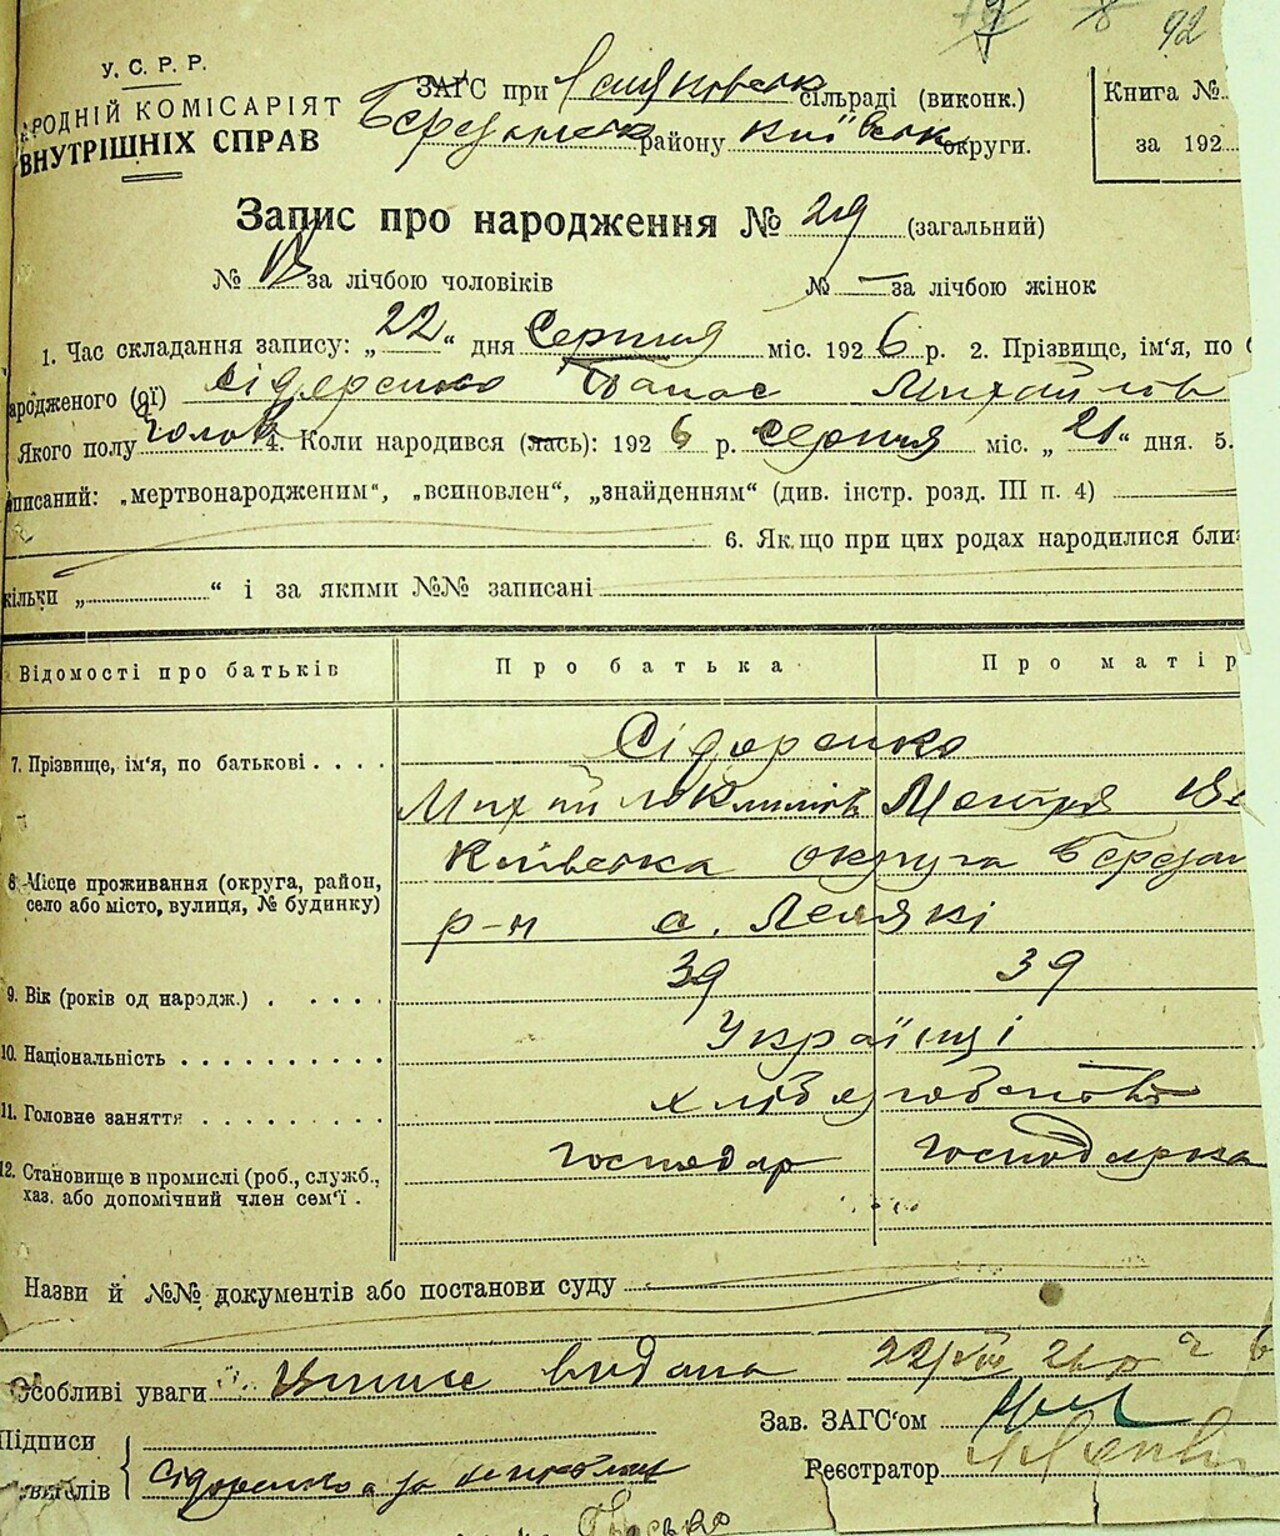 92
У. С. Р. Р.
РОДНІЙ КОМІСАРІЯТ
ВНУТРІШНІХ СПРАВ
ЗАГС при сільраді (виконк.)
району Київськ округи.
Книга №
за 192
Запис про народження № 29 (загальний)
№ 13 за лічбою чоловіків № — за лічбою жінок
1. Час складання запису: „22“ дня Серпня міс. 1926 р. 2. Прізвище, ім'я, по
ародженого (ої) Сідоренко Панас Михайлов
Якого полу чолов 4. Коли народився (лась): 1926 р. серпня міс. „21“ дня. 5.
писаний: „мертвонародженим“, „всиновлен“, „знайденням“ (див. інстр. розд. III п. 4)
6. Якщо при цих родах народилися бли
кільки „ “ і за якими №№ записані
Відомості про батьків Про батька Про матір
7. Прізвище, ім'я, по батькові Сідоренко
Михайло Климів Мотря
8. Місце проживання (округа, район, село або місто, вулиця, № будинку) Київська округа Березан
р-н с. Лемякі
9. Вік (років од народж.) 39 39
10. Національність Українці
11. Головне заняття хліборобство
12. Становище в промислі (роб., служб., хаз. або допомічний член сем'ї. господар господарка
Назви й №№ документів або постанови суду
Особливі уваги Випис видана 22/VIII 26 р
Зав. ЗАГС'ом
Підписи
Сідоренко а за
Реєстратор